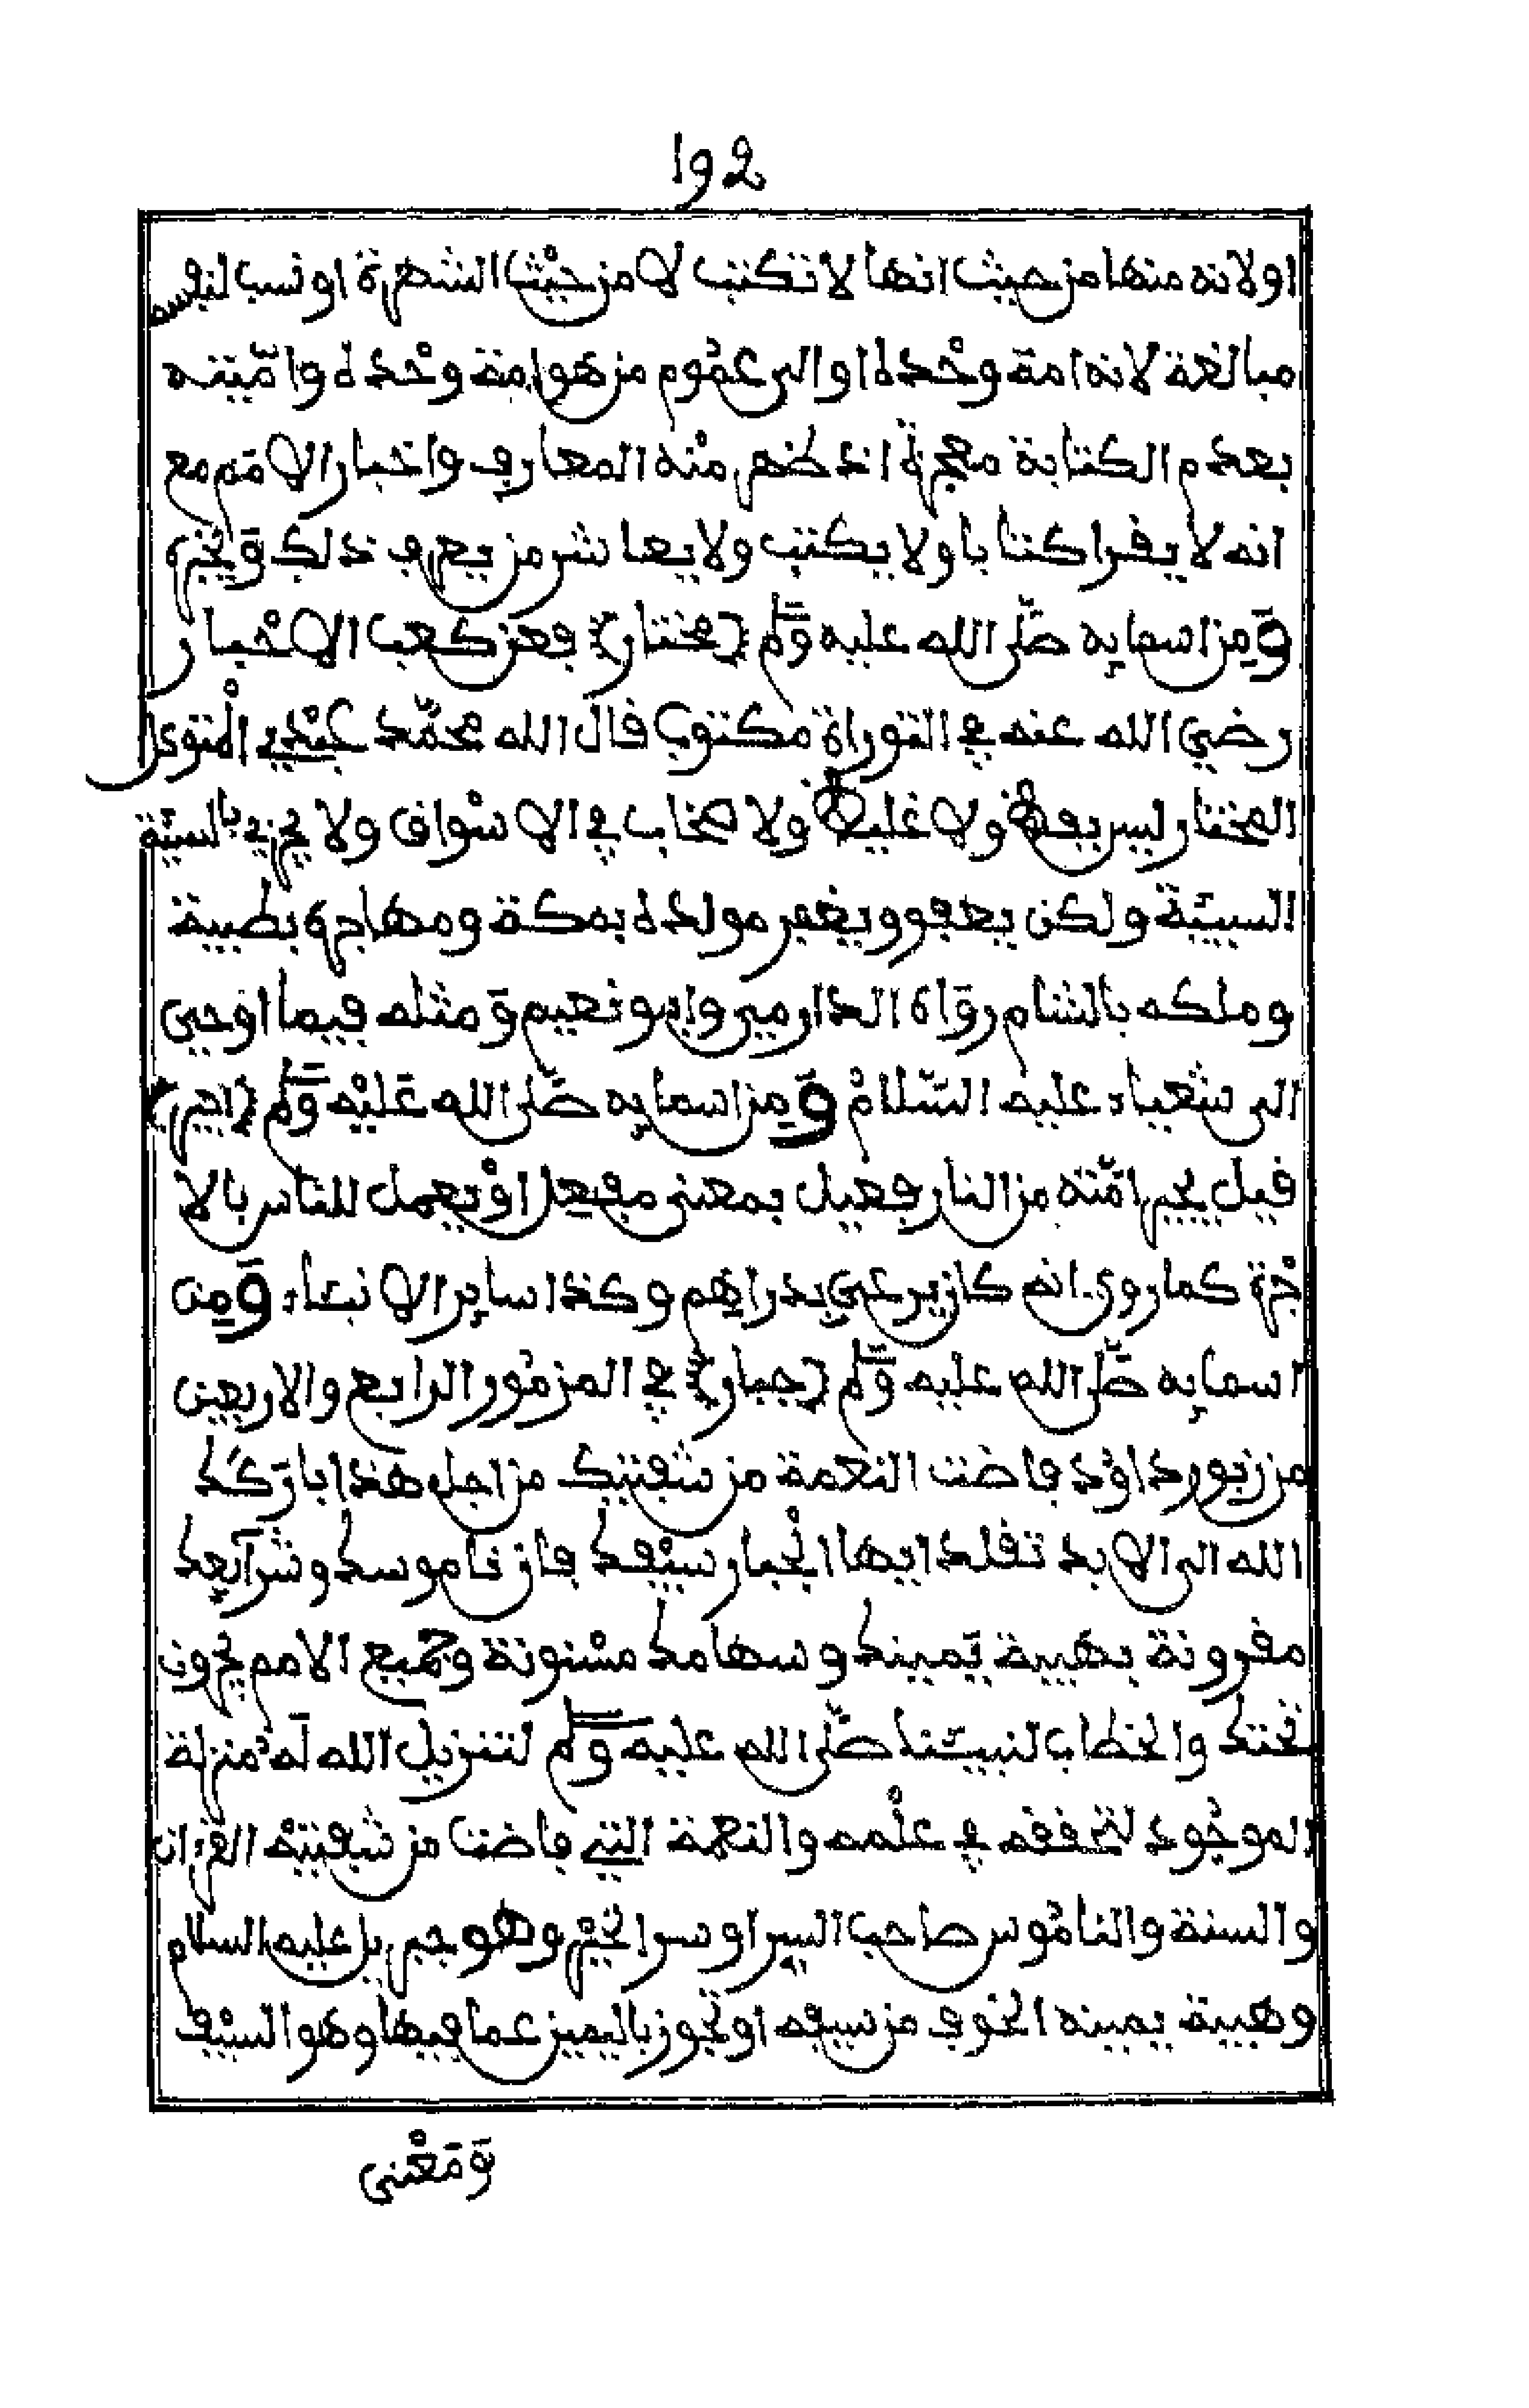 192
اولانه منها من حيث انها لا تكتب لا من حيث الشهرة او نسب لنفسه
مبالغة لانه امة وحده او الى عموم من هو امة وحده وامّيته
بعدم الكتابة معجزة اذ ظهر منه المعارف واخبار الامم مع
انه لا يقرا كتابا ولا يكتب ولا يعاشر من يعرف ذلك
وَمِن اسمايه صلّى الله عليه وسلم (مختار) فعن كعب الاحْبار
رضي الله عنه في التوراة مكتوب قال الله محمّد عبْدي المتوكل
المختار ليس بفظ ولا غليظ ولا صخاب في الاسْواق ولا يجزي بالسيّة
السيّة ولكن يعفو ويغفر مولده بمكة ومهاجره بطيبة
وملكه بالشام رواه الدارمي وابو نعيم ومثله فيما اوحى
الى شعياء عليه السّلامْ وَمِن اسمايه صلّى الله عَليْه وسلم (اجير)
قيل يجير امّته من النار فعيل بمعنى مفعل اوْ يعمل للناس بالا
جْرة كما روي انه كان يرعى بدراهم وكذا ساير الانبياء وَمِن
اسمايه صلّى الله عليه وسلم (جبار) في المزمُور الرابع والاربعين
من زبور داوُد فاضت النعمة من شفتيك من اجل هذا بارَكك
الله الى الابد تقلد ايها الجْبار سيْفك فان ناموسك وشرآيعك
مقرونة بهَيبة يَمينك وسهامك مسْنونة وجميع الامم يخرون
تحْتك والخطاب لنبيّنا صلّى الله عليه وسلم لتنزيل الله لَه منزلة
الموجُود لتحققه في علْمه والنعمة التي فاضت من شفتيْه القرءان
والسنة والنامُوس صاحب السِر او سر الخيْر وهو جبريل عليه السلام
وهَيبة يمينه الخوف من سيفه او تجَوز باليمين عما فيها وهو السيْف
وَمَعْنى